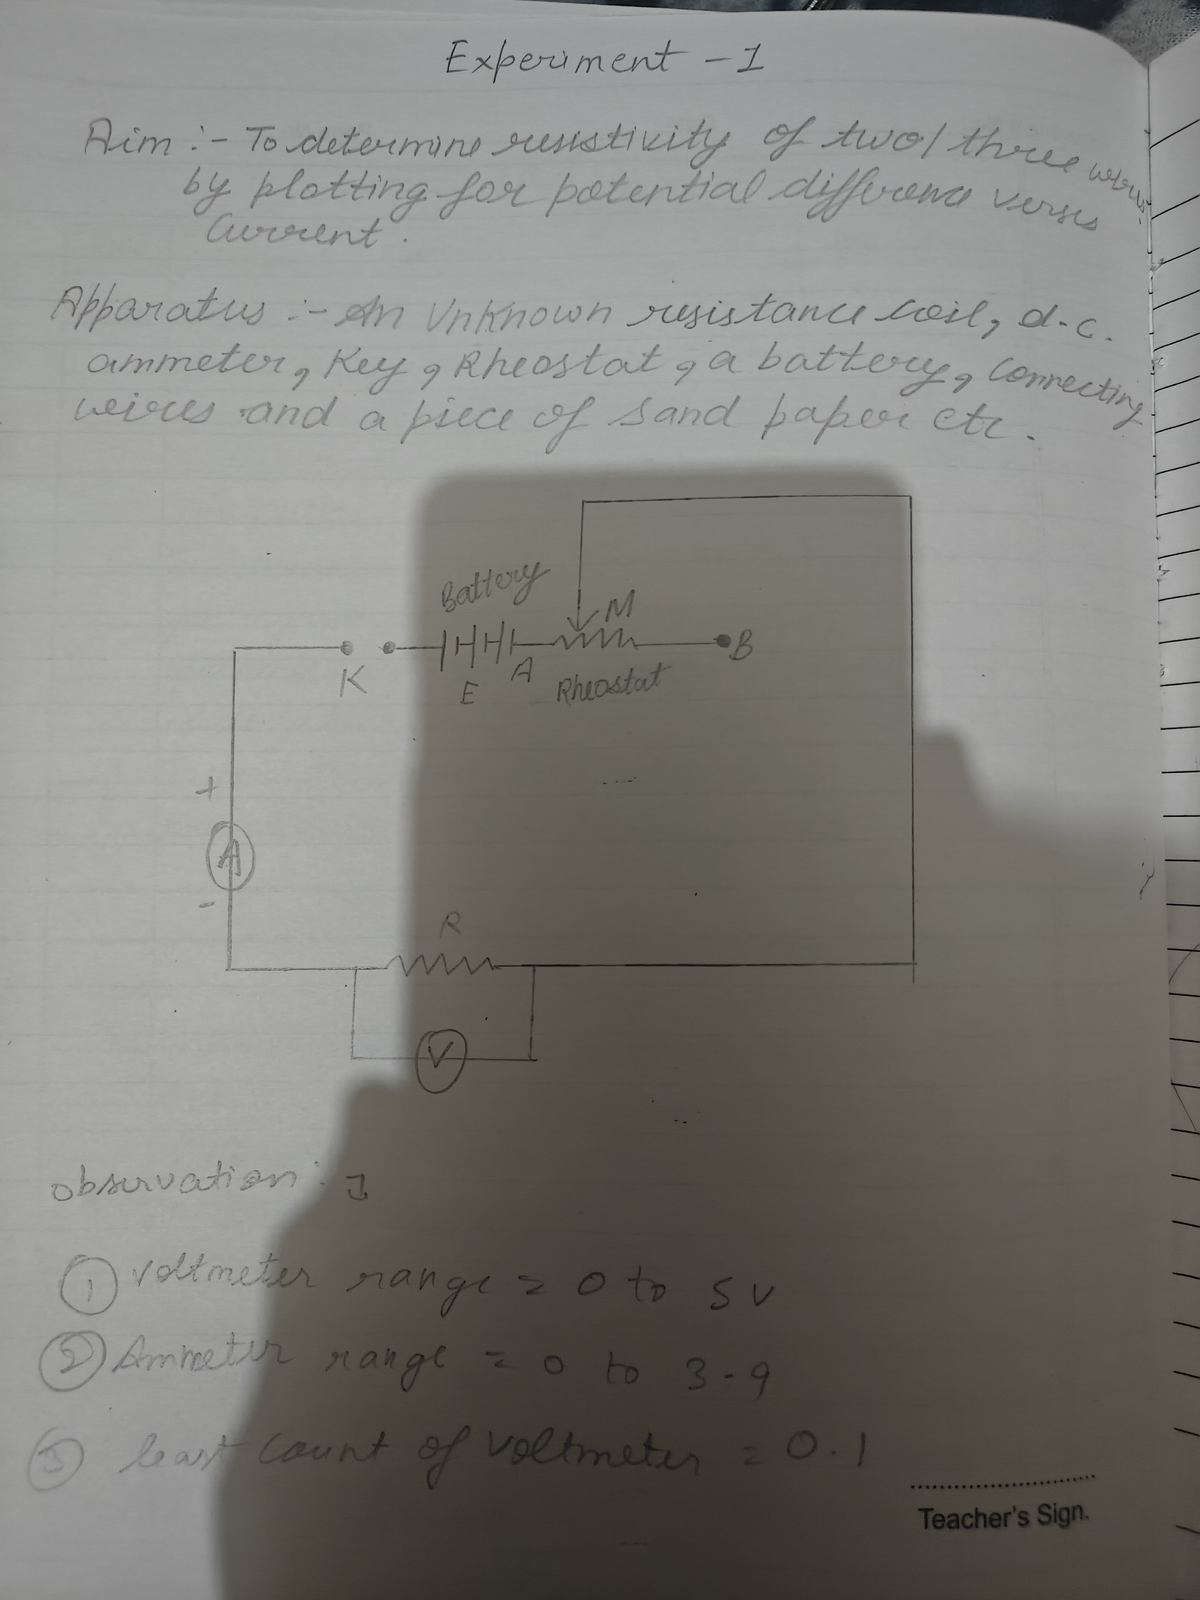 Experiment - 1
Aim :- To determine resistivity of two/three wires
by plotting for potential difference verses
Current.
Apparatus :- An Unknown resistance coil, d.c.
ammeter, Key, Rheostat, a battery, Connecting
wires and a piece of Sand paper etc.
Battery
M
B
K
E
A
Rheostat
+
A
-
R
V
observation :-
① voltmeter range = 0 to 5 V
② Ammeter range = 0 to 3-9
③ least count of voltmeter = 0.1
Teacher's Sign.